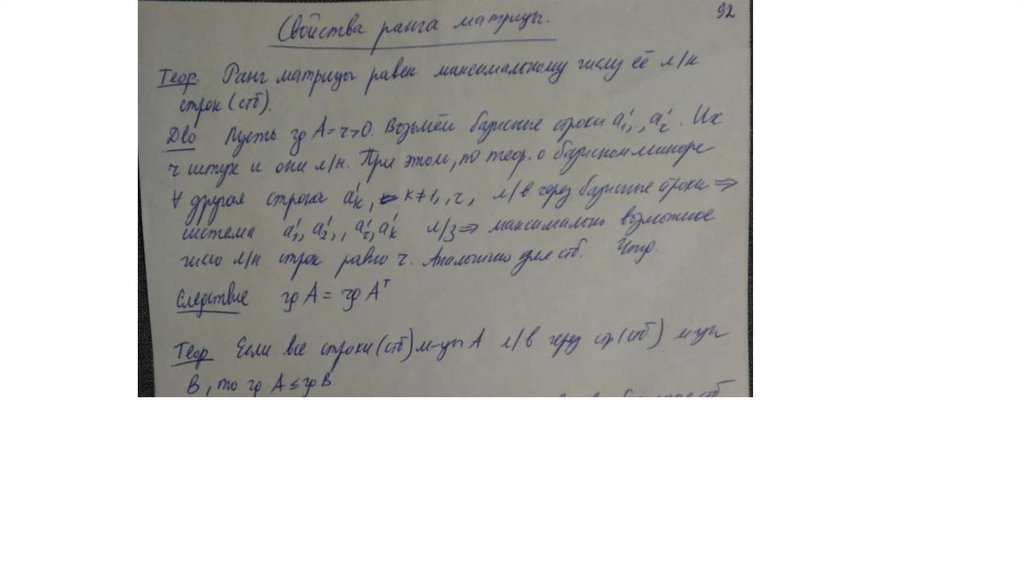 92
Свойства ранга матрицы.
Теор. Ранг матрицы равен максимальному числу её л/н
строк (стб).
Д-во Пусть rg A = r > 0. Возьмём базисные строки a'₁, , a'ᵣ. Их
r штук и они л/н. При этом, по теор. о базисном миноре
∀ другая строка a'ₖ, k ≠ 1, , r, л/в через базисные строки ⇒
система a'₁, a'₂, , a'ᵣ, a'ₖ л/з ⇒ максимально возможное
число л/н строк равно r. Аналогично для стб. Чтд.
Следствие rg A = rg Aᵀ
Теор Если все строки (стб) м-цы A л/в через стр (стб) м-цы
B, то rg A ≤ rg B